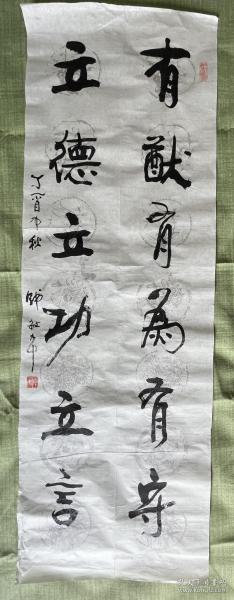 有猷有為有守
立德立功立言
丁酉中秋